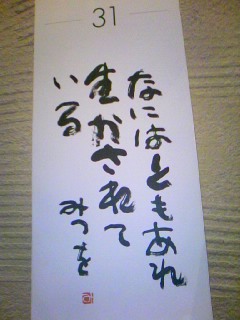 31
なにはともあれ
生かされて
いる
みつを